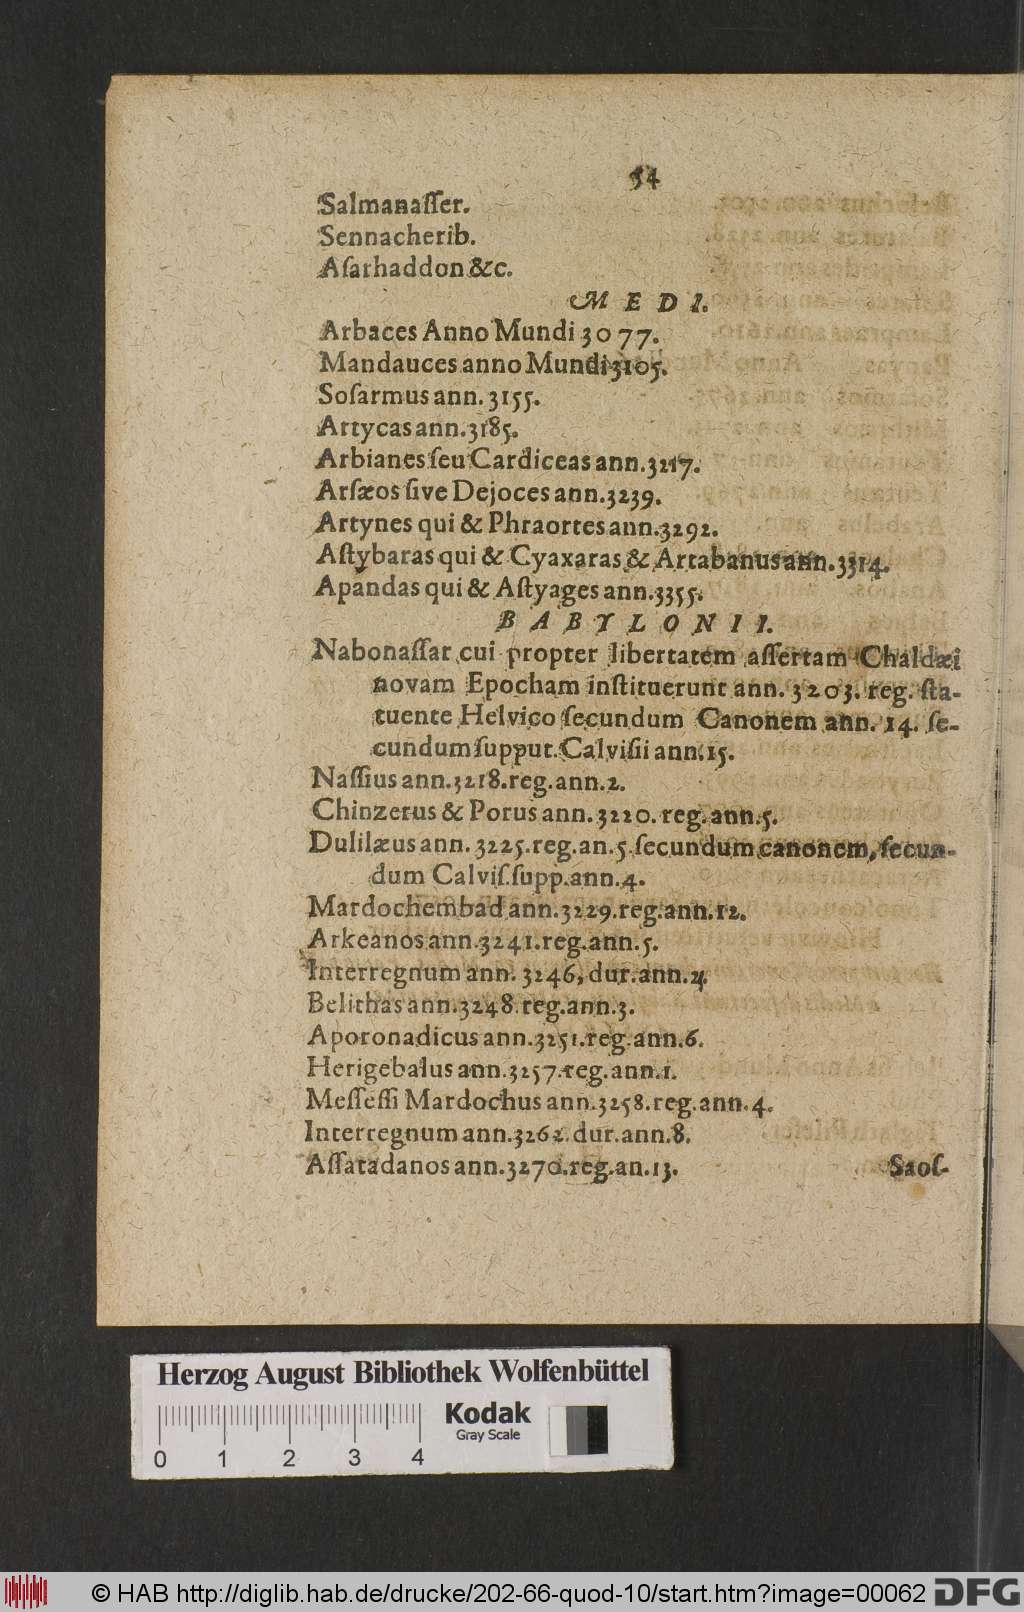 54
Salmanaſſer.
Sennacherib.
Aſarhaddon &c.
MEDI.
Arbaces Anno Mundi 3077.
Mandauces anno Mundi 3105.
Soſarmus ann. 3155.
Artycas ann. 3185.
Arbianes ſeu Cardiceas ann. 3217.
Arſæos ſive Dejoces ann. 3239.
Artynes qui & Phraortes ann. 3292.
Aſtybaras qui & Cyaxaras & Artabanus ann. 3314.
Apandas qui & Aſtyages ann. 3355.
BABYLONII.
Nabonaſſar cui propter libertatem aſſertam Chaldæi
novam Epocham inſtituerunt ann. 3203. reg. ſta-
tuente Helvico ſecundum Canonem ann. 14. ſe-
cundum ſupput. Calviſii ann. 15.
Naſſius ann. 3218. reg. ann. 2.
Chinzerus & Porus ann. 3220. reg. ann. 5.
Dulilæus ann. 3225. reg. an. 5. ſecundum canonem, ſecun-
dum Calviſ. ſupp. ann. 4.
Mardochembad ann. 3229. reg. ann. 12.
Arkeanos ann. 3241. reg. ann. 5.
Interregnum ann. 3246, dur. ann. 2.
Belithas ann. 3248. reg. ann. 3.
Aporonadicus ann. 3251. reg. ann. 6.
Herigebalus ann. 3257. reg. ann. 1.
Meſſeſſi Mardochus ann. 3258. reg. ann. 4.
Interregnum ann. 3262. dur. ann. 8.
Aſſatadanos ann. 3270. reg. an. 13.
Saoſ-
Herzog August Bibliothek Wolfenbüttel
Kodak
Gray Scale
0 1 2 3 4
© HAB http://diglib.hab.de/drucke/202-66-quod-10/start.htm?image=00062
DFG